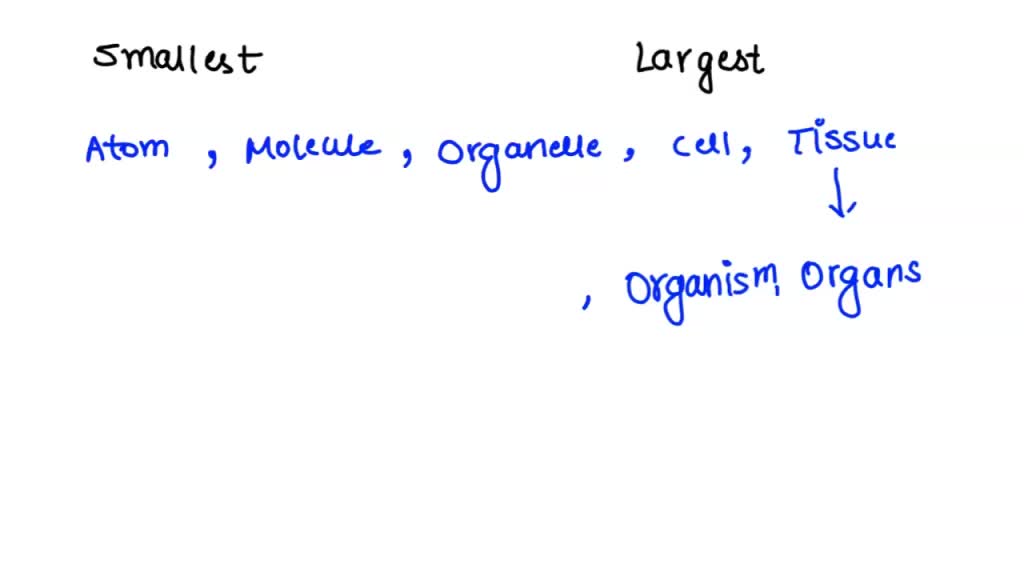 Smallest Largest
Atom , Molecule , Organelle , Cell, Tissue
, Organism, Organs